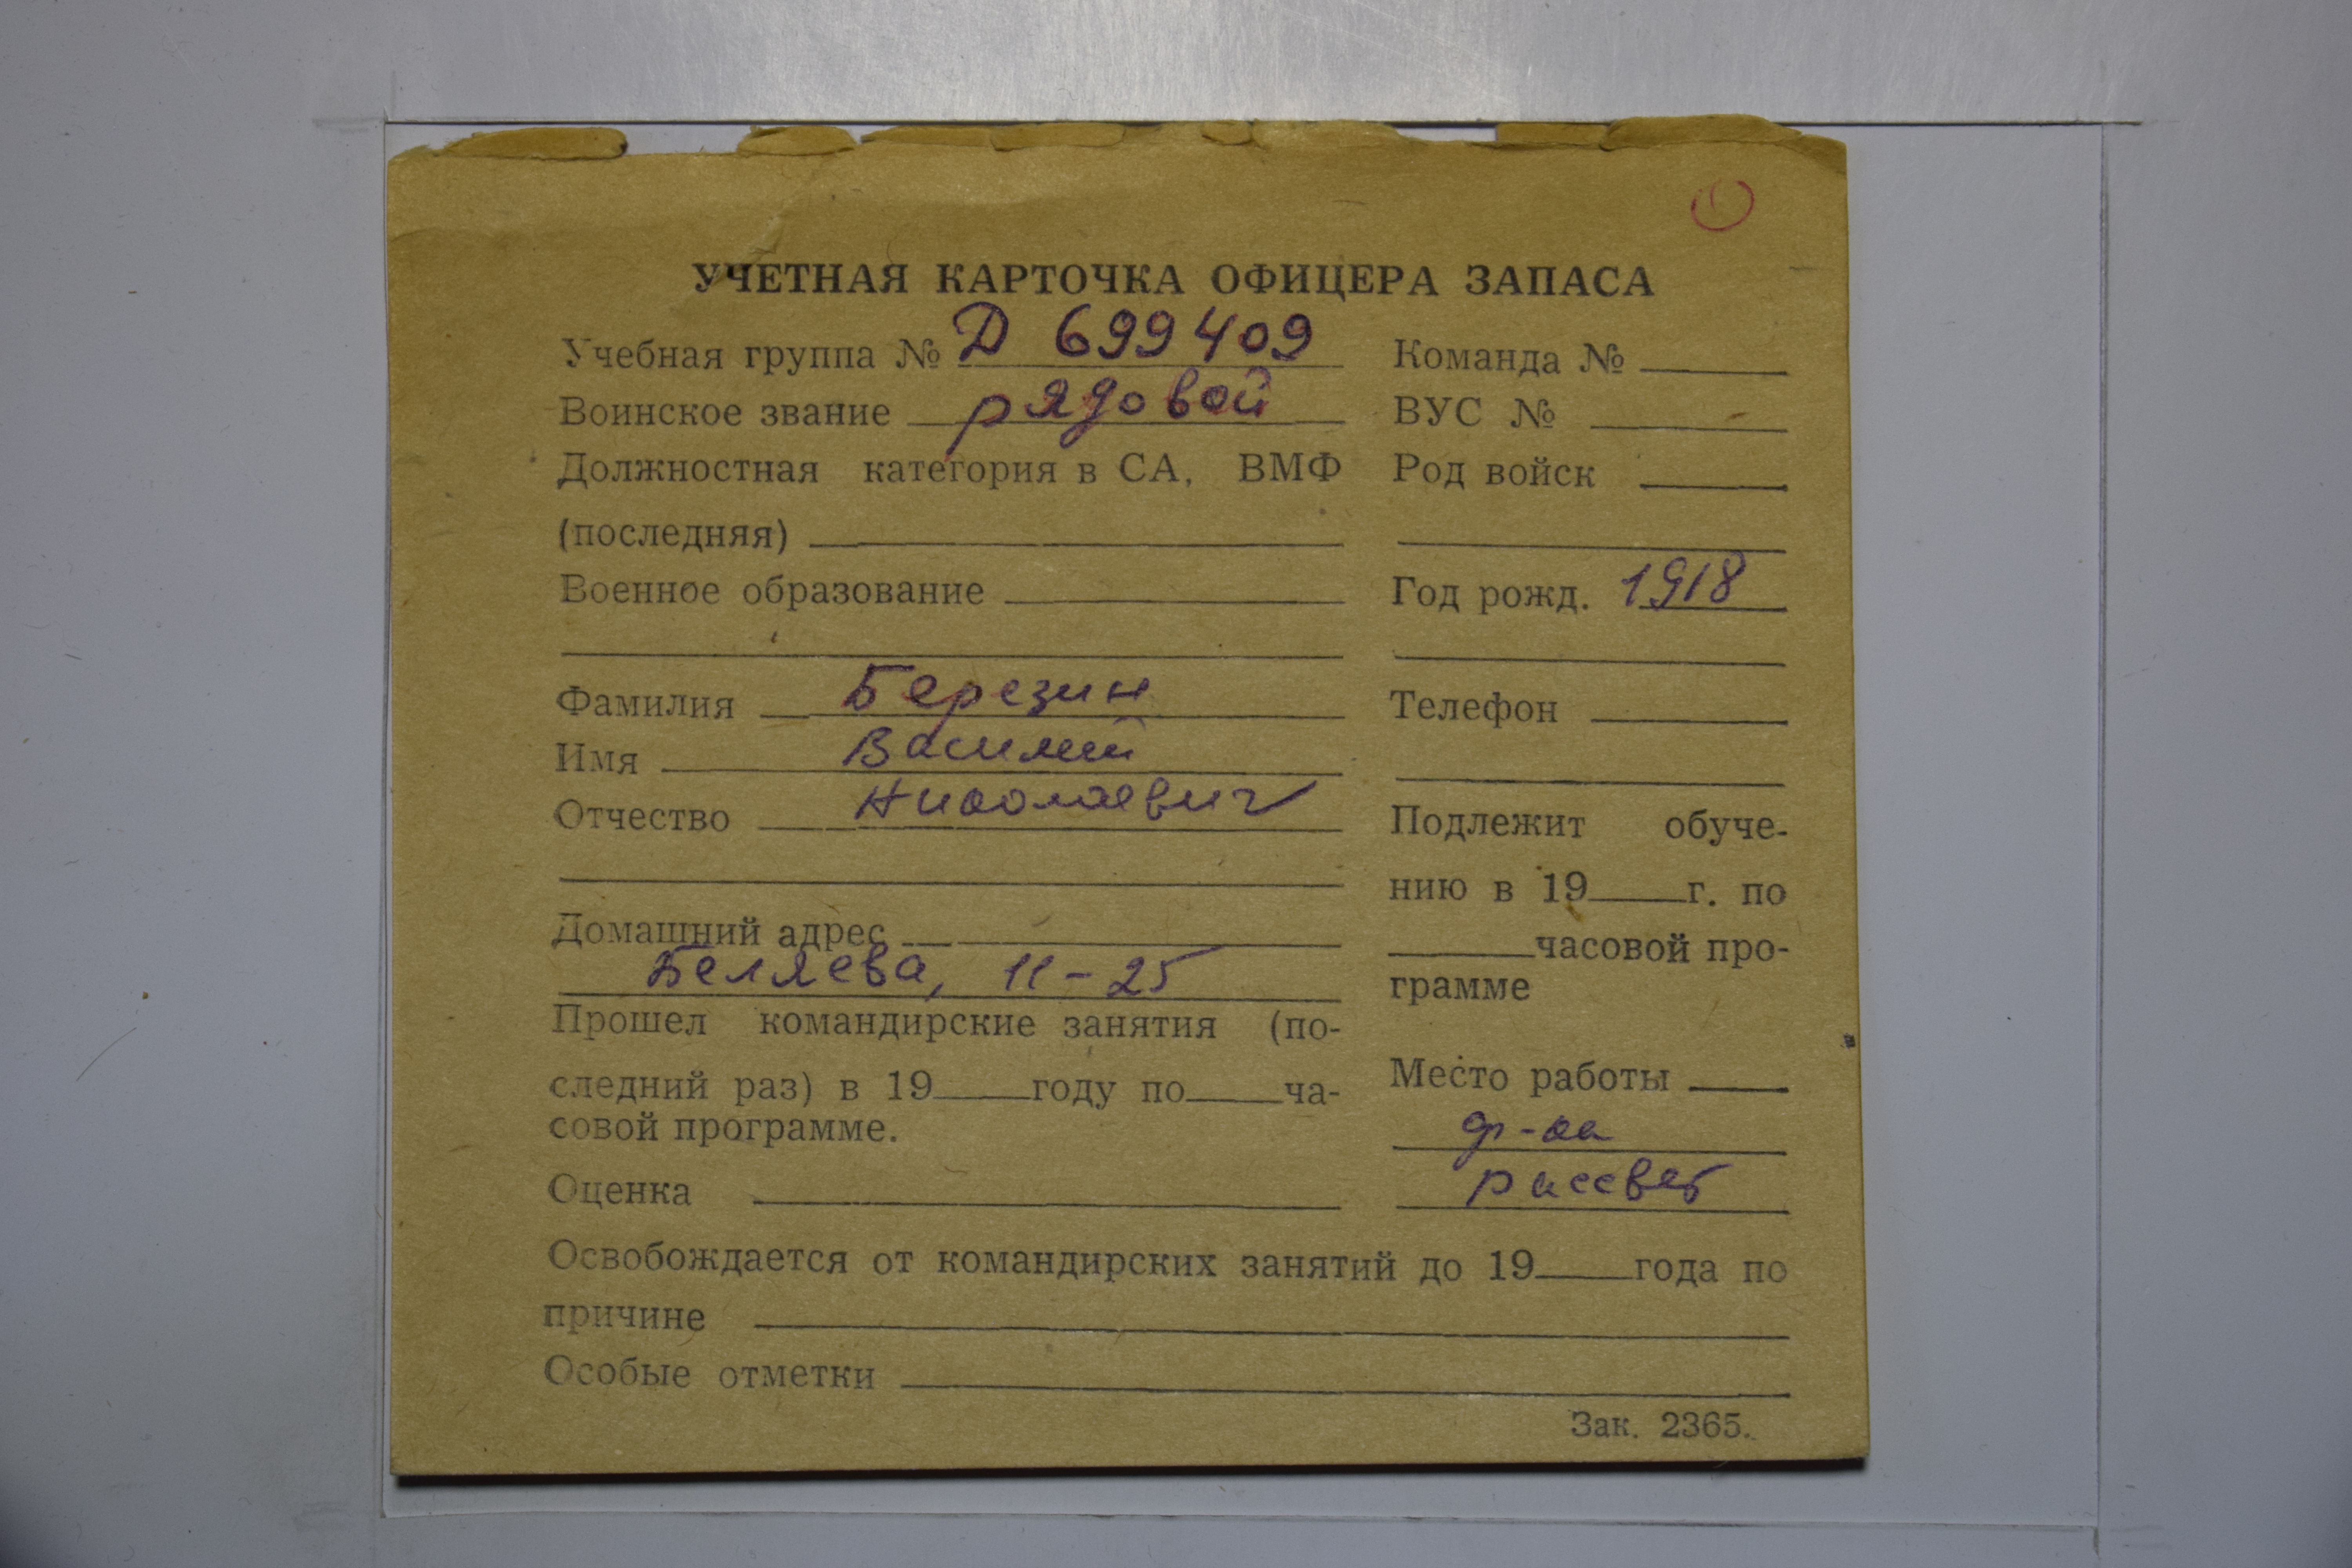 УЧЕТНАЯ КАРТОЧКА ОФИЦЕРА ЗАПАСА
Учебная группа № Д 699409
Воинское звание рядовой
Должностная категория в СА, ВМФ
(последняя)
Военное образование
Фамилия Березин
Имя Василий
Отчество Николаевич
Домашний адрес
Беляева, 11-25
Прошел командирские занятия (по-
следний раз) в 19 году по ча-
совой программе.
Оценка
Команда №
ВУС №
Род войск
Год рожд. 1918
Телефон
Подлежит обуче-
нию в 19 г. по
часовой про-
грамме
Место работы
ф-ка
рассвет
Освобождается от командирских занятий до 19 года по
причине
Особые отметки
Зак. 2365.